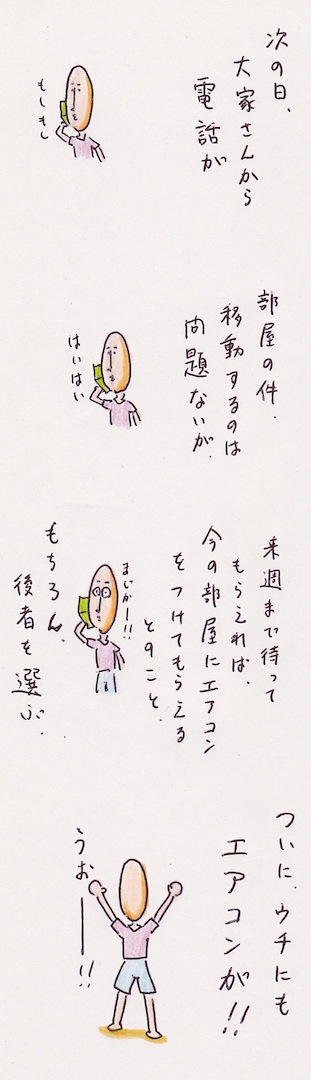 次の日、
大家さんから
電話が
もしもし
部屋の件.
移動するのは
問題ないが.
はいはい
来週まで待って
もらえれば、
今の部屋にエアコン
をつけてもらえる
とのこと.
まじかー!!
もちろん、
後者を選ぶ.
ついに.ウチにも
エアコンが!!
うおー!!